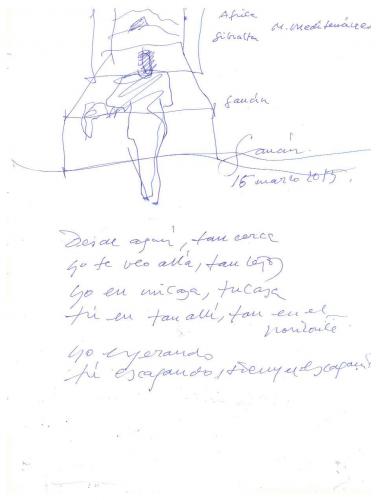 Africa
Gibraltar M. Mediterráneo
Gaucín
Gaucín.
16 marzo 2015.
Desde aquí, tan cerca
yo te veo allá, tan lejos
yo en mi casa, tu casa
tú en tan allí, tan en el
horizonte.
yo esperando
tú escapando, siempre escapando